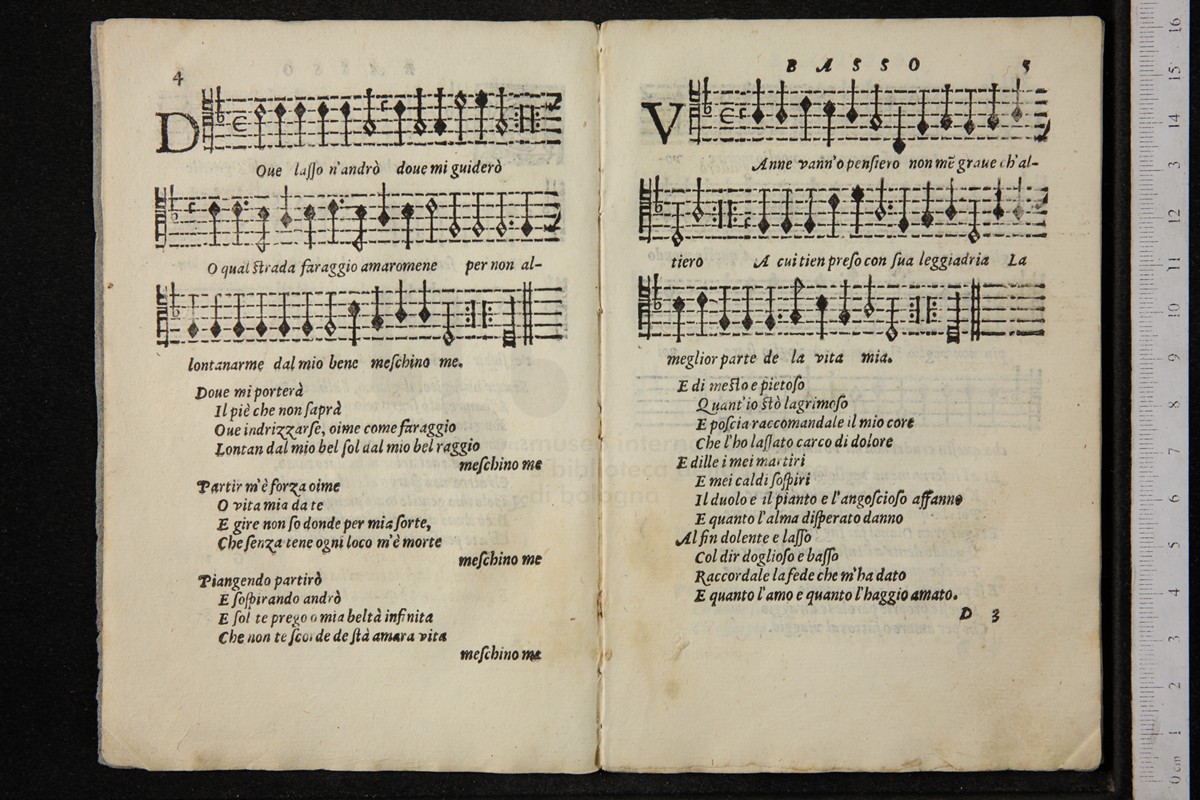 4
D Oue lasso n'andrò doue mi guiderò
O qual strada faraggio amaromene per non al-
lontanarme dal mio bene meschino me.
Doue mi porterà
Il piè che non saprà
Oue indrizzarse, oime come faraggio
Lontan dal mio bel sol dal mio bel raggio
meschino me
Partir m'è forza oime
O vita mia da te
E gire non so donde per mia sorte,
Che senza tene ogni loco m'è morte
meschino me
Piangendo partirò
E sospirando andrò
E sol te prego o mia beltà infinita
Che non te scorde de stà amara vita
meschino me
BASSO 5
V Anne vann'o pensiero non mẽ graue ch'al-
tiero A cui tien preso con sua leggiadria La
meglior parte de la vita mia.
E di mesto e pietoso
Quant'io stò lagrimoso
E poscia raccomandale il mio core
Che l'ho lassato carco di dolore
E dille i mei martiri
E mei caldi sospiri
Il duolo e il pianto e l'angoscioso affanno
E quanto l'alma disperato danno
Al fin dolente e lasso
Col dir doglioso e basso
Raccordale la fede che m'ha dato
E quanto l'amo e quanto l'haggio amato.
D 3
museo interna
biblioteca
di bologna
0 cm 1 2 3 4 5 6 7 8 9 10 11 12 13 14 15 16